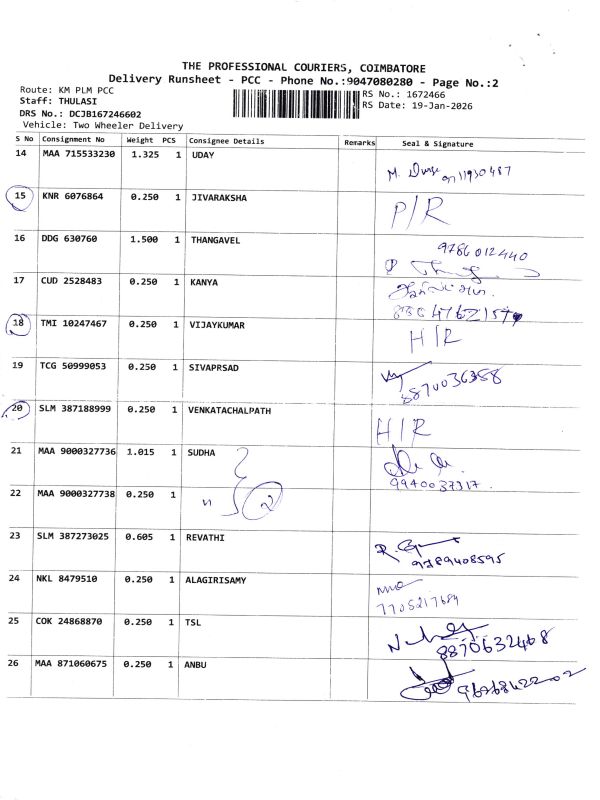 THE PROFESSIONAL COURIERS, COIMBATORE
Delivery Runsheet - PCC - Phone No.:9047080280 - Page No.:2
Route: KM PLM PCC
Staff: THULASI
DRS No.: DCJB167246602
Vehicle: Two Wheeler Delivery
RS No.: 1672466
RS Date: 19-Jan-2026
S No Consignment No Weight PCS Consignee Details Remarks Seal & Signature
14 MAA 715533230 1.325 1 UDAY
15 KNR 6076864 0.250 1 JIVARAKSHA P/R
16 DDG 630760 1.500 1 THANGAVEL 9786012440
17 CUD 2528483 0.250 1 KANYA
18 TMI 10247467 0.250 1 VIJAYKUMAR H/R
19 TCG 50999053 0.250 1 SIVAPRSAD 8870036388
20 SLM 387188999 0.250 1 VENKATACHALPATH H/R
21 MAA 9000327736 1.015 1 SUDHA 9940037317
22 MAA 9000327738 0.250 1 " 2
23 SLM 387273025 0.605 1 REVATHI 9789408595
24 NKL 8479510 0.250 1 ALAGIRISAMY
25 COK 24868870 0.250 1 TSL 8870632468
26 MAA 871060675 0.250 1 ANBU